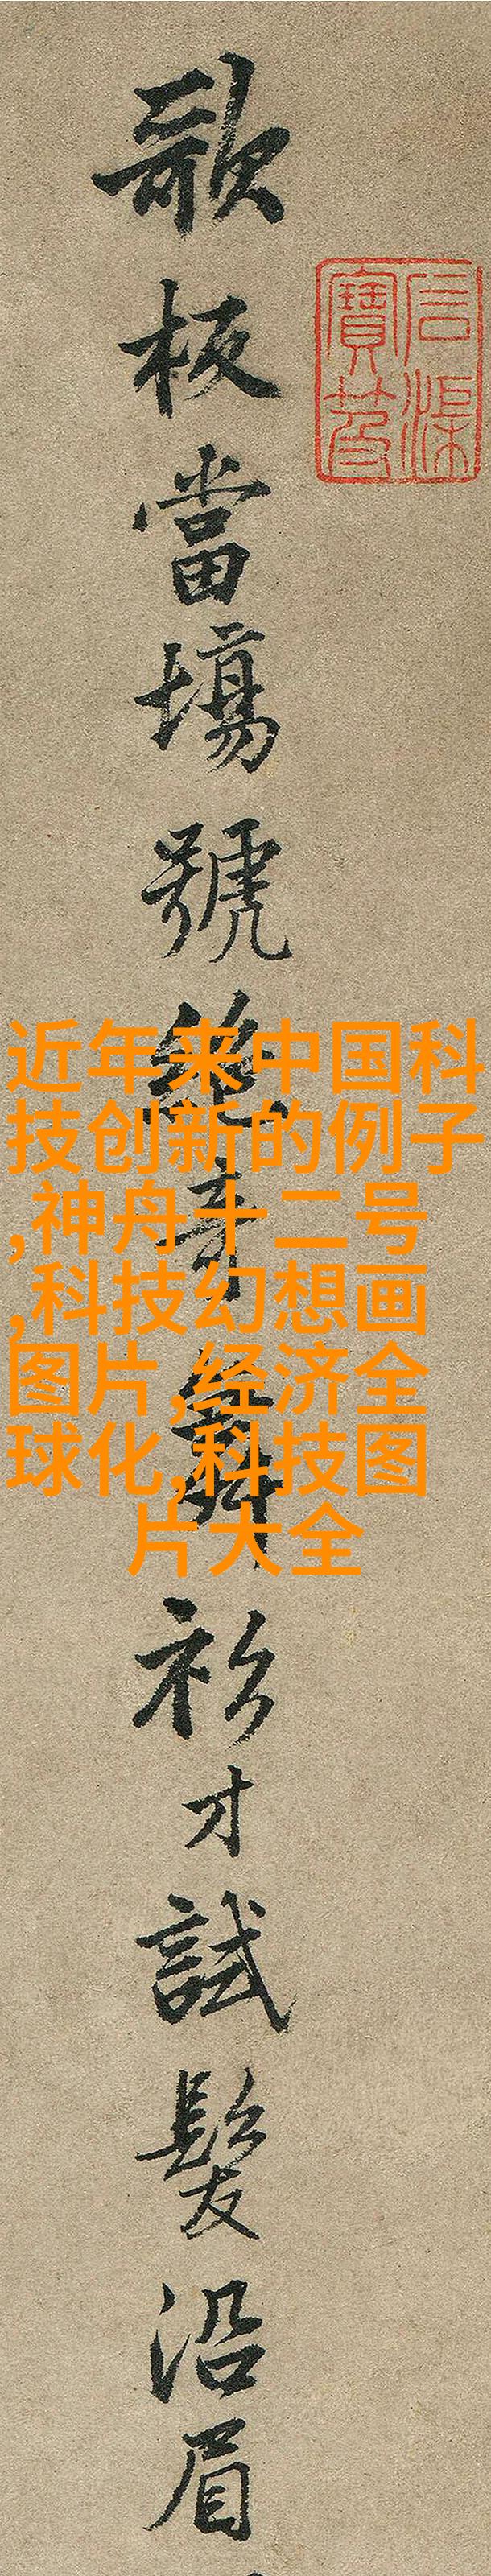 石渠寶笈
歌板當場號絕奇舞衫才試髮沿眉
近年来中国科
技创新的例子
,神舟十二号
,科技幻想画
图片,经济全
球化,科技图
片大全